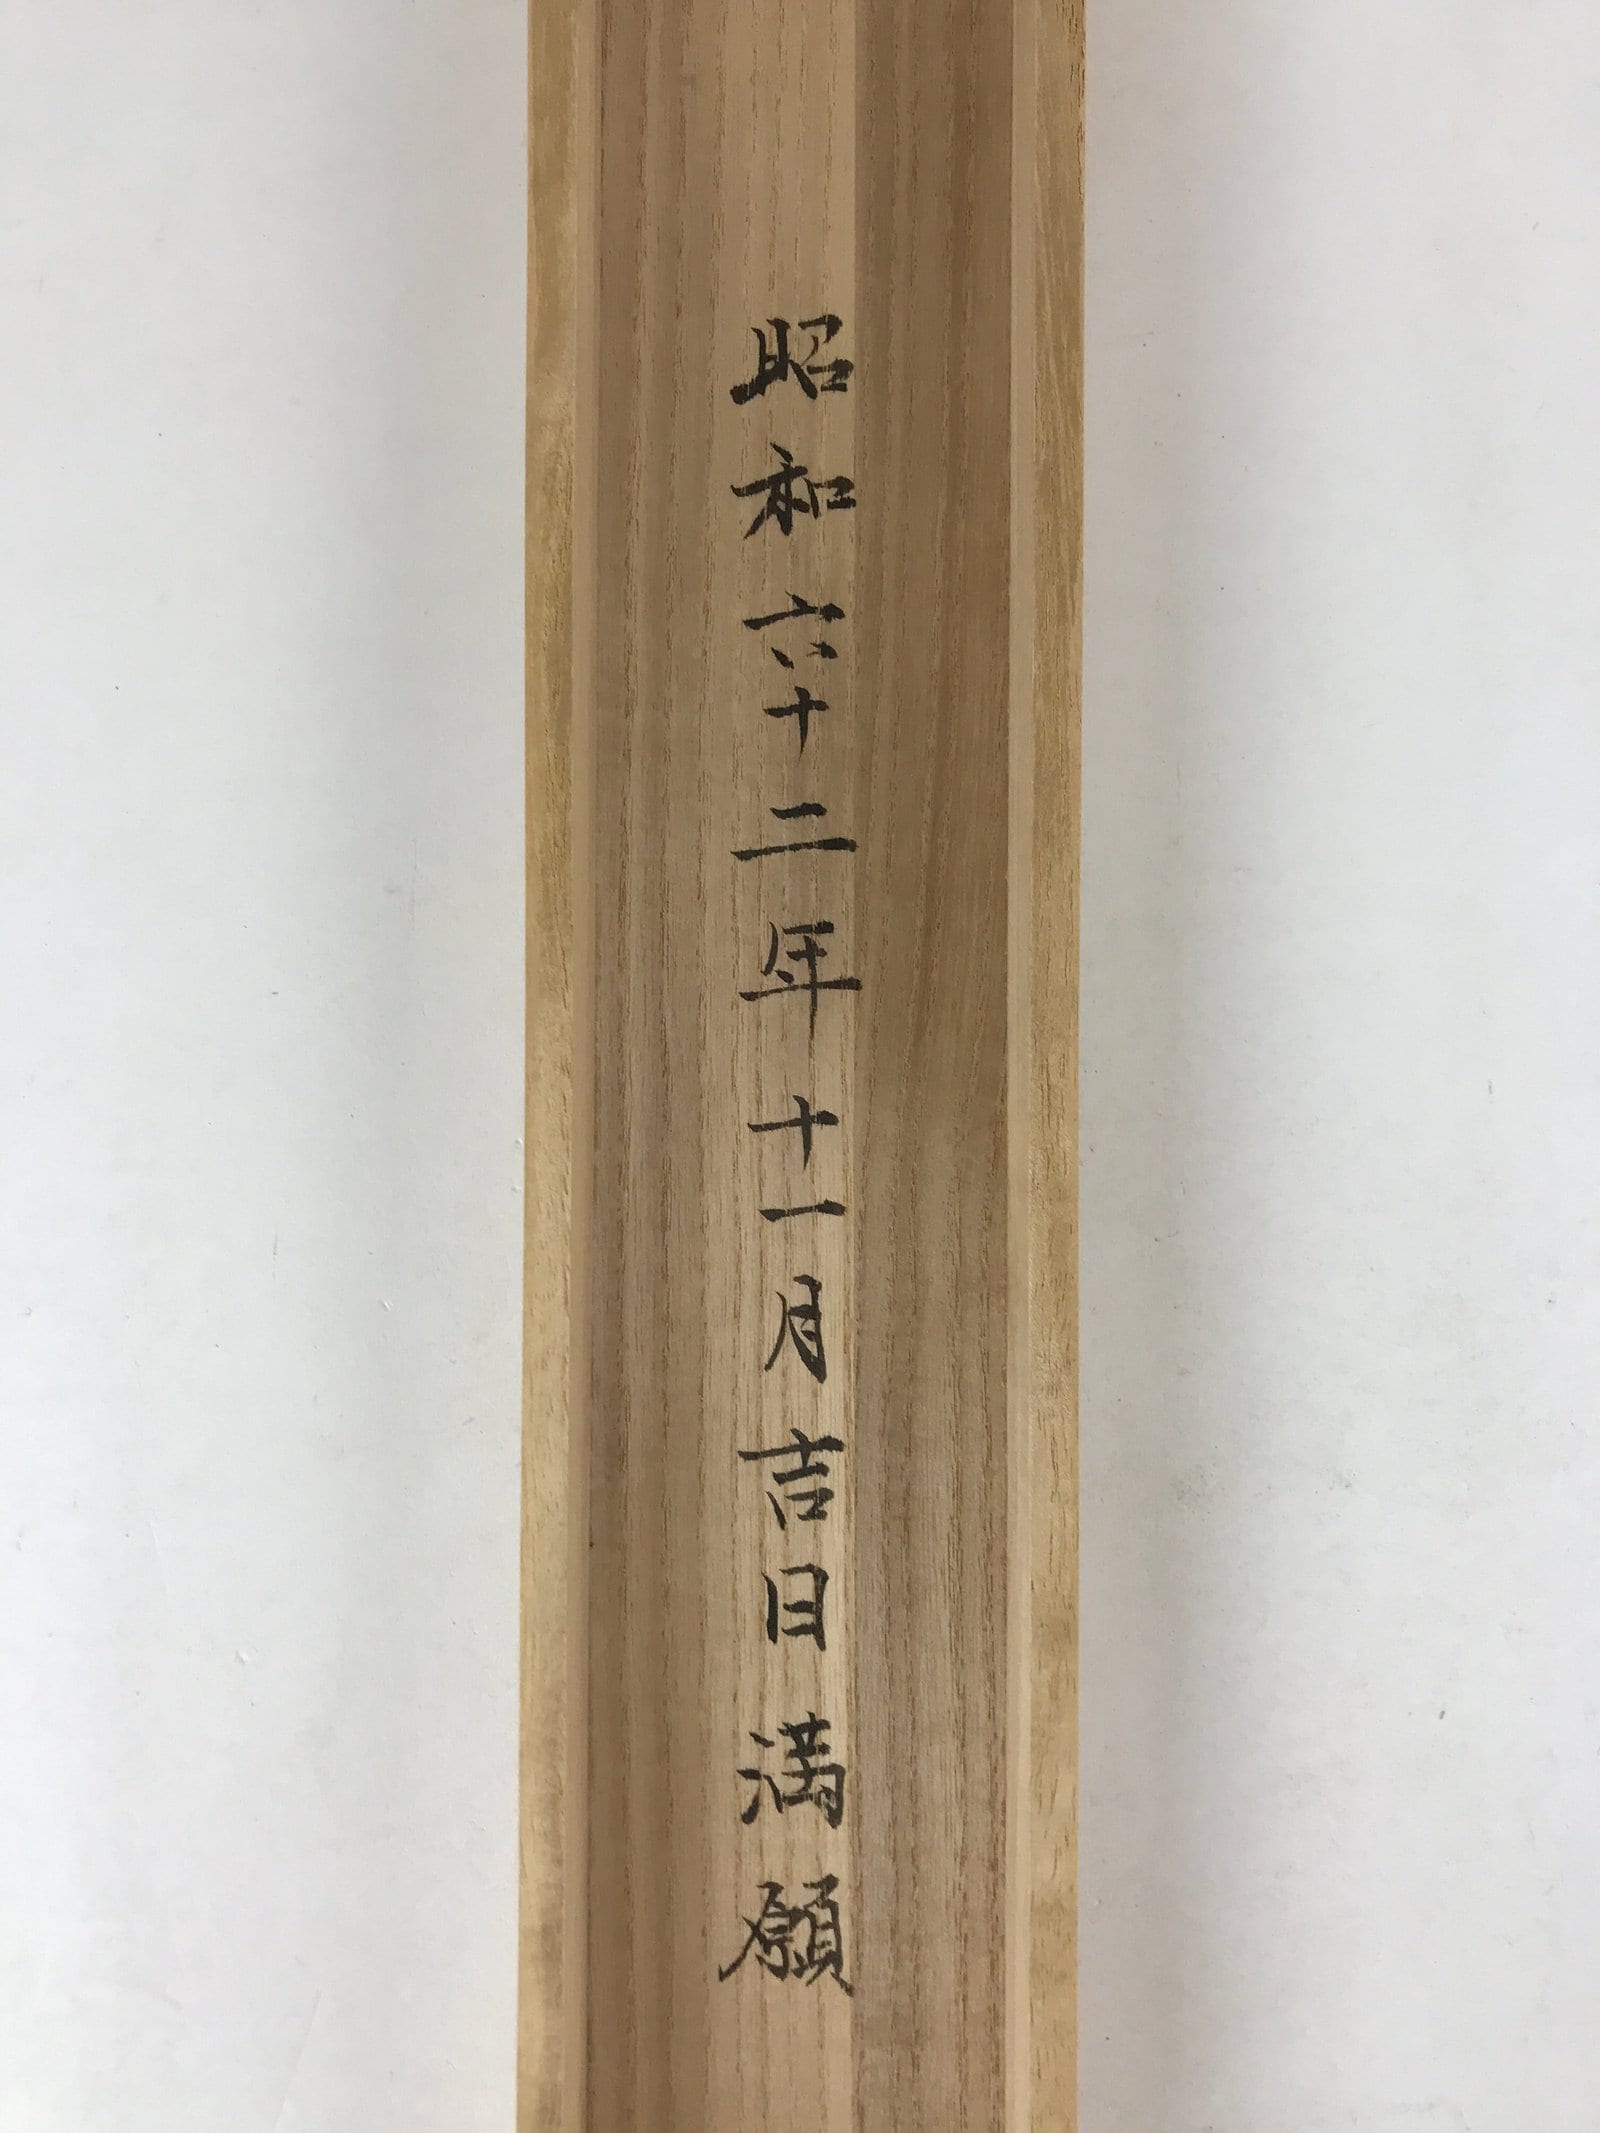 昭和六十二年十一月吉日満願